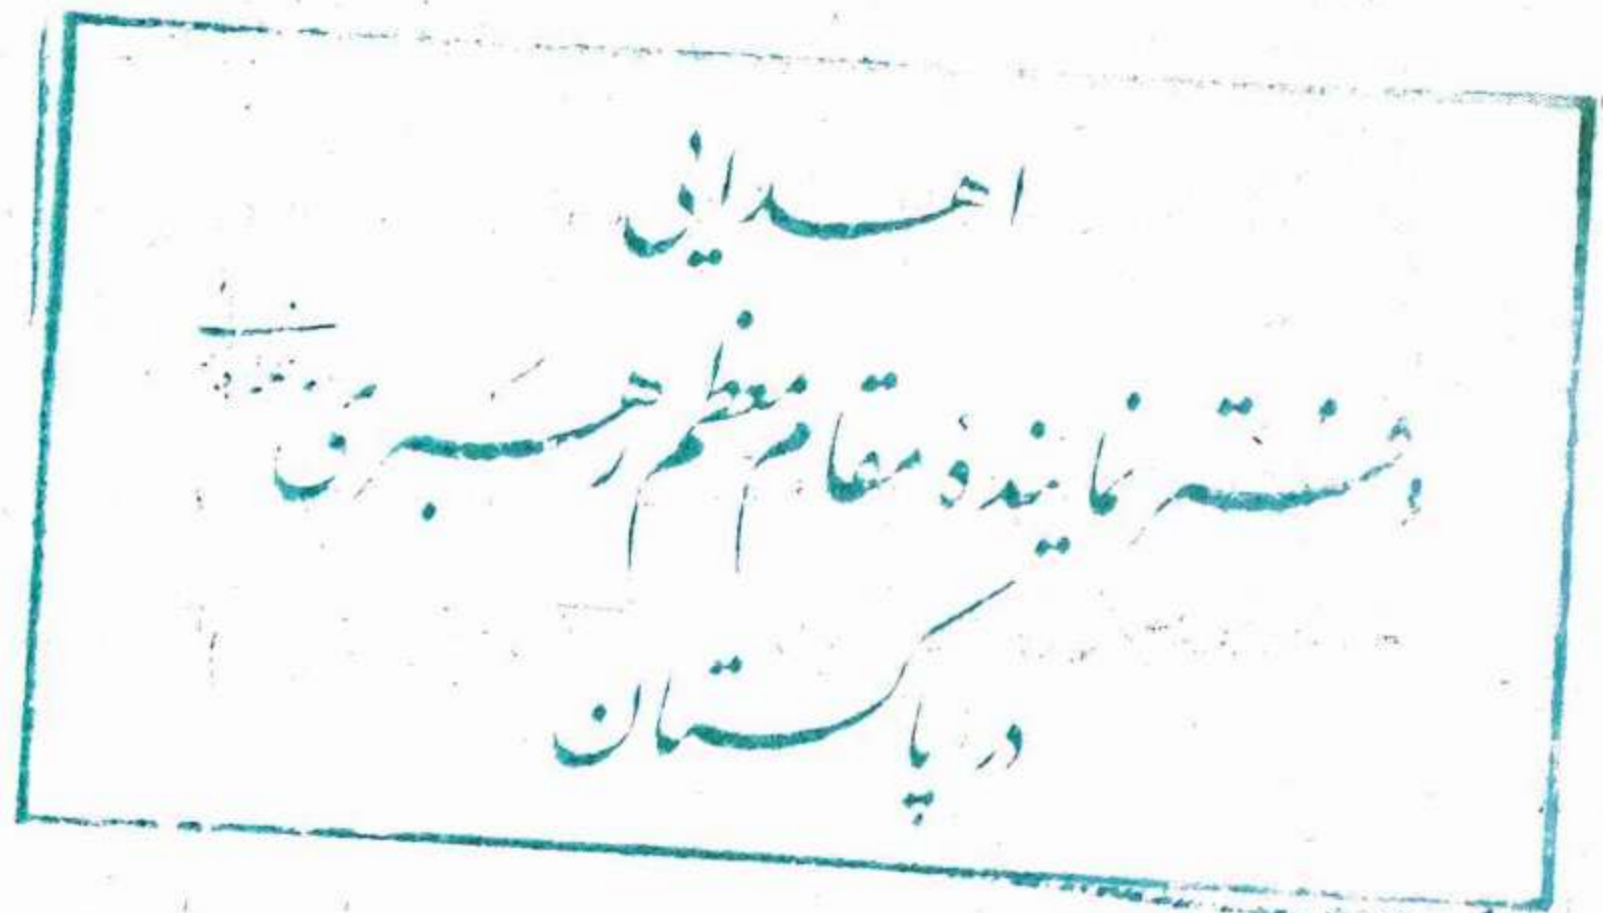 اهدایی
دفتر نمایندهٔ مقام معظم رهبری
در پاکستان